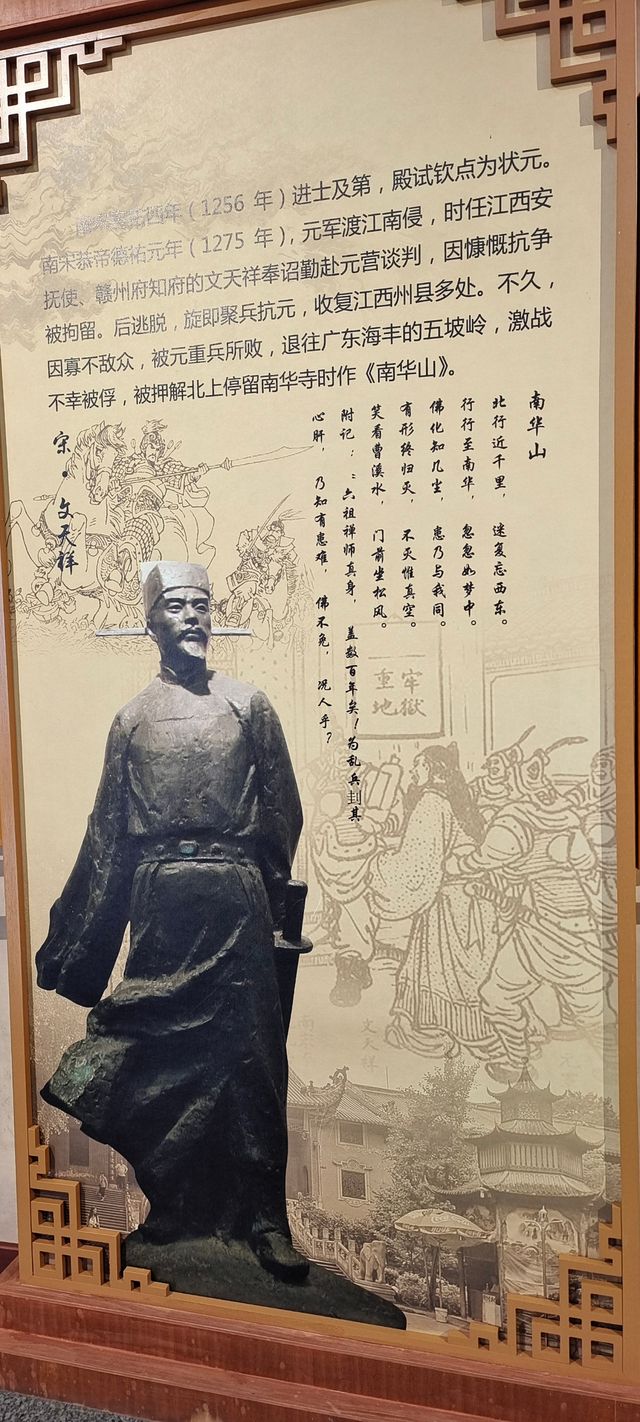 四年（1256 年）进士及第，殿试钦点为状元。
南宋恭帝德祐元年（1275 年），元军渡江南侵，时任江西安
抚使、赣州府知府的文天祥奉诏勤赴元营谈判，因慷慨抗争
被拘留。后逃脱，旋即聚兵抗元，收复江西州县多处。不久，
因寡不敌众，被元重兵所败，退往广东海丰的五坡岭，激战
不幸被俘，被押解北上停留南华寺时作《南华山》。
南华山
北行近千里，迷复忘西东。
行行至南华，忽忽如梦中。
佛化知几尘，患乃与我同。
有形终归灭，不灭惟真空。
笑看曹溪水，门前坐松风。
附记：：六祖禅师真身，盖数百年矣！为乱兵刲其
心肝，乃知有患难，佛不免，况人乎？
宋·文天祥
牢獄
重地
文天祥